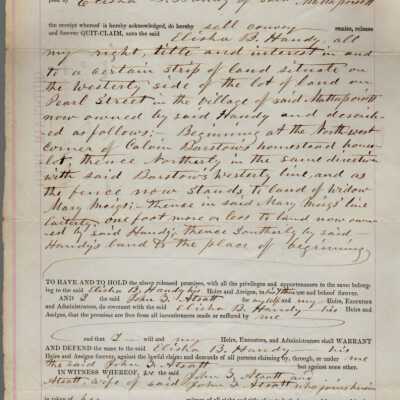 Elisha B. Handy of said Mattapoisett
the receipt whereof is hereby acknowledged, do hereby sell convey remise, release
and forever QUIT-CLAIM, unto the said Elisha B. Handy all
my right, title and interest in and
to a certain strip of land situate on
the Westerly side of the lot of land on
Pearl Street in the village of said Mattapoisett
now owned by said Handy and describ-
ed as follows; Beginning at the Northwest
corner of Calvin Barstow's homestead house
lot, thence Northerly in the same direction
with said Barstow's Westerly line, and as
the fence now stands, to land of Widow
Mary Meigs; thence in said Mary Meigs' line
Easterly one foot more or less to land now own-
ed by said Handy; thence Southerly by said
Handy's land to the place of beginning
TO HAVE AND TO HOLD the above released premises, with all the privileges and appurtenances to the same belong-
ing to the said Elisha B. Handy his Heirs and Assigns, to his & their use and behoof forever.
AND I the said John T. Atsatt for myself and my Heirs, Executors
and Administrators, do covenant with the said Elisha B. Handy his Heirs and
Assigns, that the premises are free from all incumbrances made or suffered by me
and that I will and my Heirs, Executors and Administrators shall WARRANT
AND DEFEND the same to the said Elisha B. Handy his
Heirs and Assigns forever, against the lawful claims and demands of all persons claiming by, through, or under me
the said John T. Atsatt but against none other.
IN WITNESS WHEREOF, we the said John T. Atsatt and
Atsatt, wife of said John T. Atsatt who joins herein
in token of her